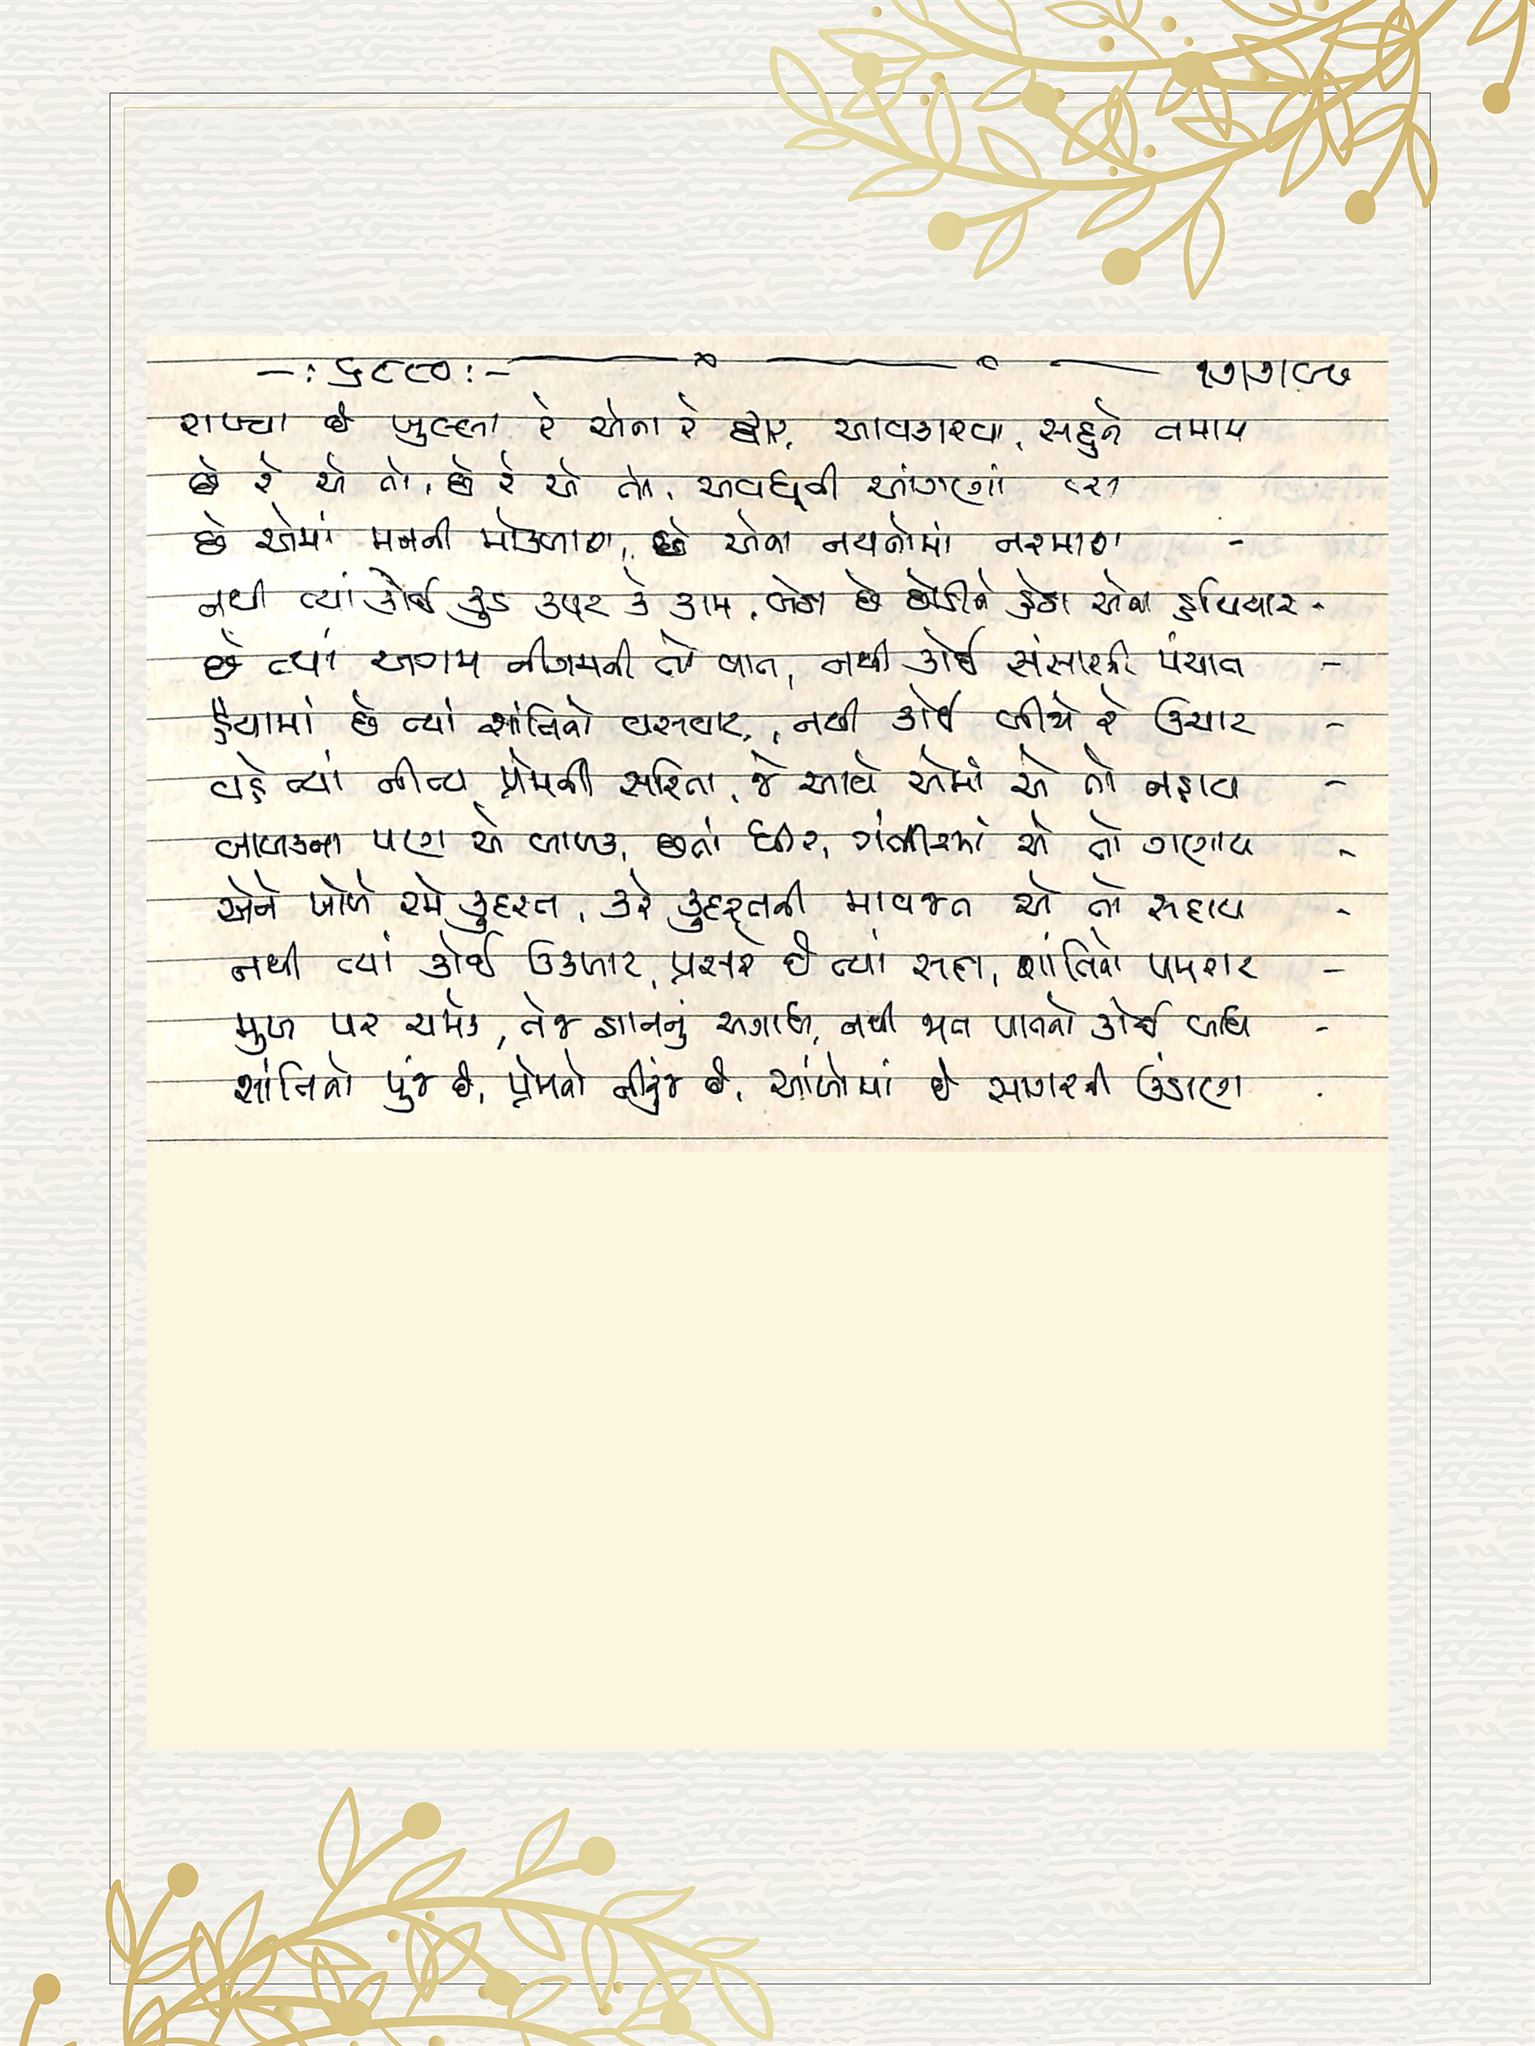 -: ૬૮૮૦ :-
રાખ્યા છે ખુલ્લા રે એના રે દ્વાર, આવકારવા, સહુને તમામ
છે રે એ તો, છે રે એ તો, અવધૂની આંગણાં
છે એમાં મનની મોકળાશ, છે એના નયનોમાં નરમાશ -
નથી ત્યાં કોઈ કૂડ કપટ કે કામ, બેઠા છે છોડીને હેઠા એના હથિયાર -
છે ત્યાં અગમ નીગમની તો વાત, નથી કોઈ સંસારની પંચાત -
હૈયામાં છે ત્યાં શાંતિનો વસવાટ, નથી કોઈ બીજો રે ઉચાટ -
વહે ત્યાં નીત્ય પ્રેમની સરિતા, જે આવે એમાં એ તો નહાય -
બાળકના પણ એ બાળક, છતાં ધીર, ગંભીરમાં એ તો ગણાય -
એને ખોળે રમે કુદરત, કરે કુદરતની માવજત એ તો સદાય -
નથી ત્યાં કોઈ ઉકળાટ, પ્રસરે છે ત્યાં સદા, શાંતિનો પમરાટ -
મુખ પર ચમકે, તેજ જ્ઞાનનું અગાધ, નથી જાત પાતનો કોઈ બાધ -
શાંતિનો પુંજ છે, પ્રેમનો નીકુંજ છે, આંખોમાં છે સાગરની ઉંડાણ .